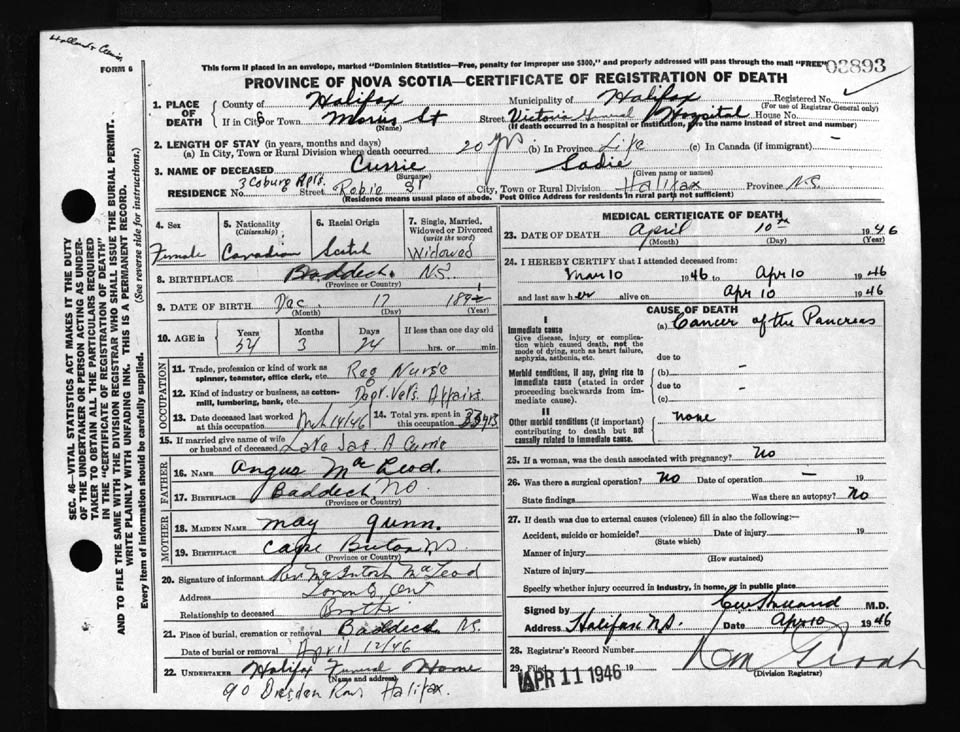 FORM 6
This form if placed in an envelope, marked "Dominion Statistics—Free, penalty for improper use $300," and properly addressed will pass through the mail "FREE"
03893
PROVINCE OF NOVA SCOTIA—CERTIFICATE OF REGISTRATION OF DEATH
1. PLACE OF DEATH
County of Halifax Municipality of Halifax Registered No.
(For use of Registrar General only)
If in City or Town Morris St Street Victoria General Hospital House No.
(Name) (If death occurred in a hospital or institution, give the name instead of street and number)
2. LENGTH OF STAY (in years, months and days)
(a) In City, Town or Rural Division where death occurred 20 yrs (b) In Province Life (c) In Canada (if immigrant) –
3. NAME OF DECEASED Currie Sadie
(Surname) (Given name or names)
RESIDENCE No. 3 Coburg Apts. Street Robie St City, Town or Rural Division Halifax Province N.S.
(Residence means usual place of abode. Post Office Address for residents in rural parts not sufficient)
SEC. 46—VITAL STATISTICS ACT MAKES IT THE DUTY
OF THE UNDERTAKER OR PERSON ACTING AS UNDER-
TAKER TO OBTAIN ALL THE PARTICULARS REQUIRED
IN THE "CERTIFICATE OF REGISTRATION OF DEATH"
AND TO FILE THE SAME WITH THE DIVISION REGISTRAR WHO SHALL ISSUE THE BURIAL PERMIT.
WRITE PLAINLY WITH UNFADING INK. THIS IS A PERMANENT RECORD.
Every item of information should be carefully supplied. (See reverse side for instructions.)
4. Sex 5. Nationality (Citizenship) 6. Racial Origin 7. Single, Married, Widowed or Divorced (write the word)
Female Canadian Scotch Widowed
8. BIRTHPLACE Baddeck N.S.
(Province or Country)
9. DATE OF BIRTH Dec. 17 1891
(Month) (Day) (Year)
10. AGE in Years Months Days If less than one day old
54 3 24 hrs. or min.
OCCUPATION
11. Trade, profession or kind of work as spinner, teamster, office clerk, etc. Reg Nurse
12. Kind of industry or business, as cotton-mill, lumbering, bank, etc. Dept. Vets. Affairs
13. Date deceased last worked at this occupation Mch 14/46 14. Total yrs. spent in this occupation
15. If married give name of wife or husband of deceased Late Jas. A Currie
FATHER
16. NAME Angus McLeod.
17. BIRTHPLACE Baddeck, N.S.
(Province or Country)
MOTHER
18. MAIDEN NAME May Gunn.
19. BIRTHPLACE Cape Breton N.S.
(Province or Country)
20. Signature of informant McIntosh McLeod
Address Ont
Relationship to deceased Brother
21. Place of burial, cremation or removal Baddeck N.S.
Date of burial or removal April 12/46
22. UNDERTAKER Halifax Funeral Home
(Name and address)
90 Dresden Row Halifax.
MEDICAL CERTIFICATE OF DEATH
23. DATE OF DEATH April 10th 1946
(Month) (Day) (Year)
24. I HEREBY CERTIFY that I attended deceased from
Mar 10 1946 to Apr 10 1946
and last saw her alive on Apr 10 1946
CAUSE OF DEATH
I
Immediate cause (a) Cancer of the Pancreas
Give disease, injury or complication which caused death, not the mode of dying, such as heart failure, asphyxia, asthenia, etc.
due to
Morbid conditions, if any, giving rise to immediate cause (stated in order proceeding backwards from immediate cause).
(b) –
due to –
(c)
II
Other morbid conditions (if important) contributing to death but not causally related to immediate cause. None
25. If a woman, was the death associated with pregnancy? No
26. Was there a surgical operation? No Date of operation – 19
State findings Was there an autopsy? No
27. If death was due to external causes (violence) fill in also the following:—
Accident, suicide or homicide? Date of injury 19
(State which)
Manner of injury
(How sustained)
Nature of injury
Specify whether injury occurred in industry, in home, or in public place
Signed by M.D.
Address Halifax N.S. Date Apr 10 1946
28. Registrar's Record Number
29. Filed APR 11 1946
(Division Registrar)